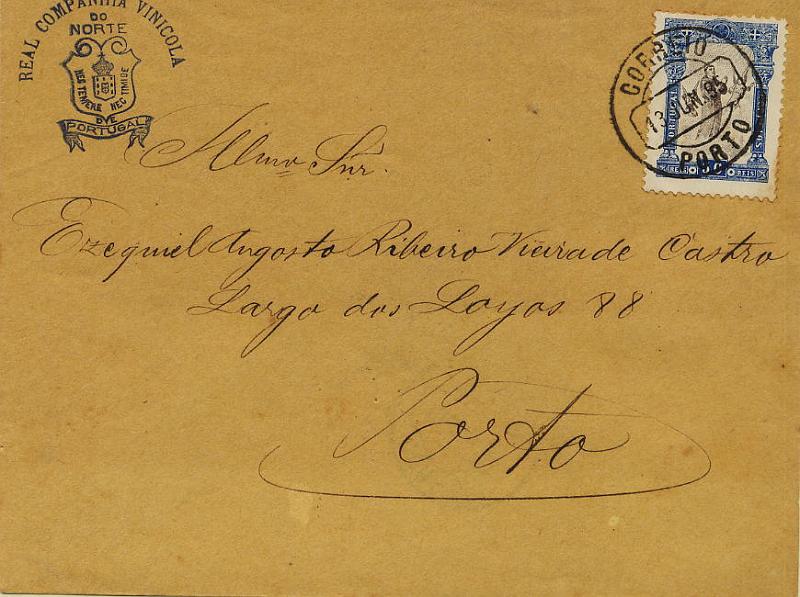 REAL COMPANHIA VINICOLA
DO
NORTE
NEC TEMERE NEC TIMIDE
DE
PORTUGAL
CORREIO
13 JUN. 95
PORTO
PORTUGAL
REIS
REIS
Illmo Snr.
Ezequiel Augosto Ribeiro Vieira de Castro
Largo dos Loyos 88
Porto